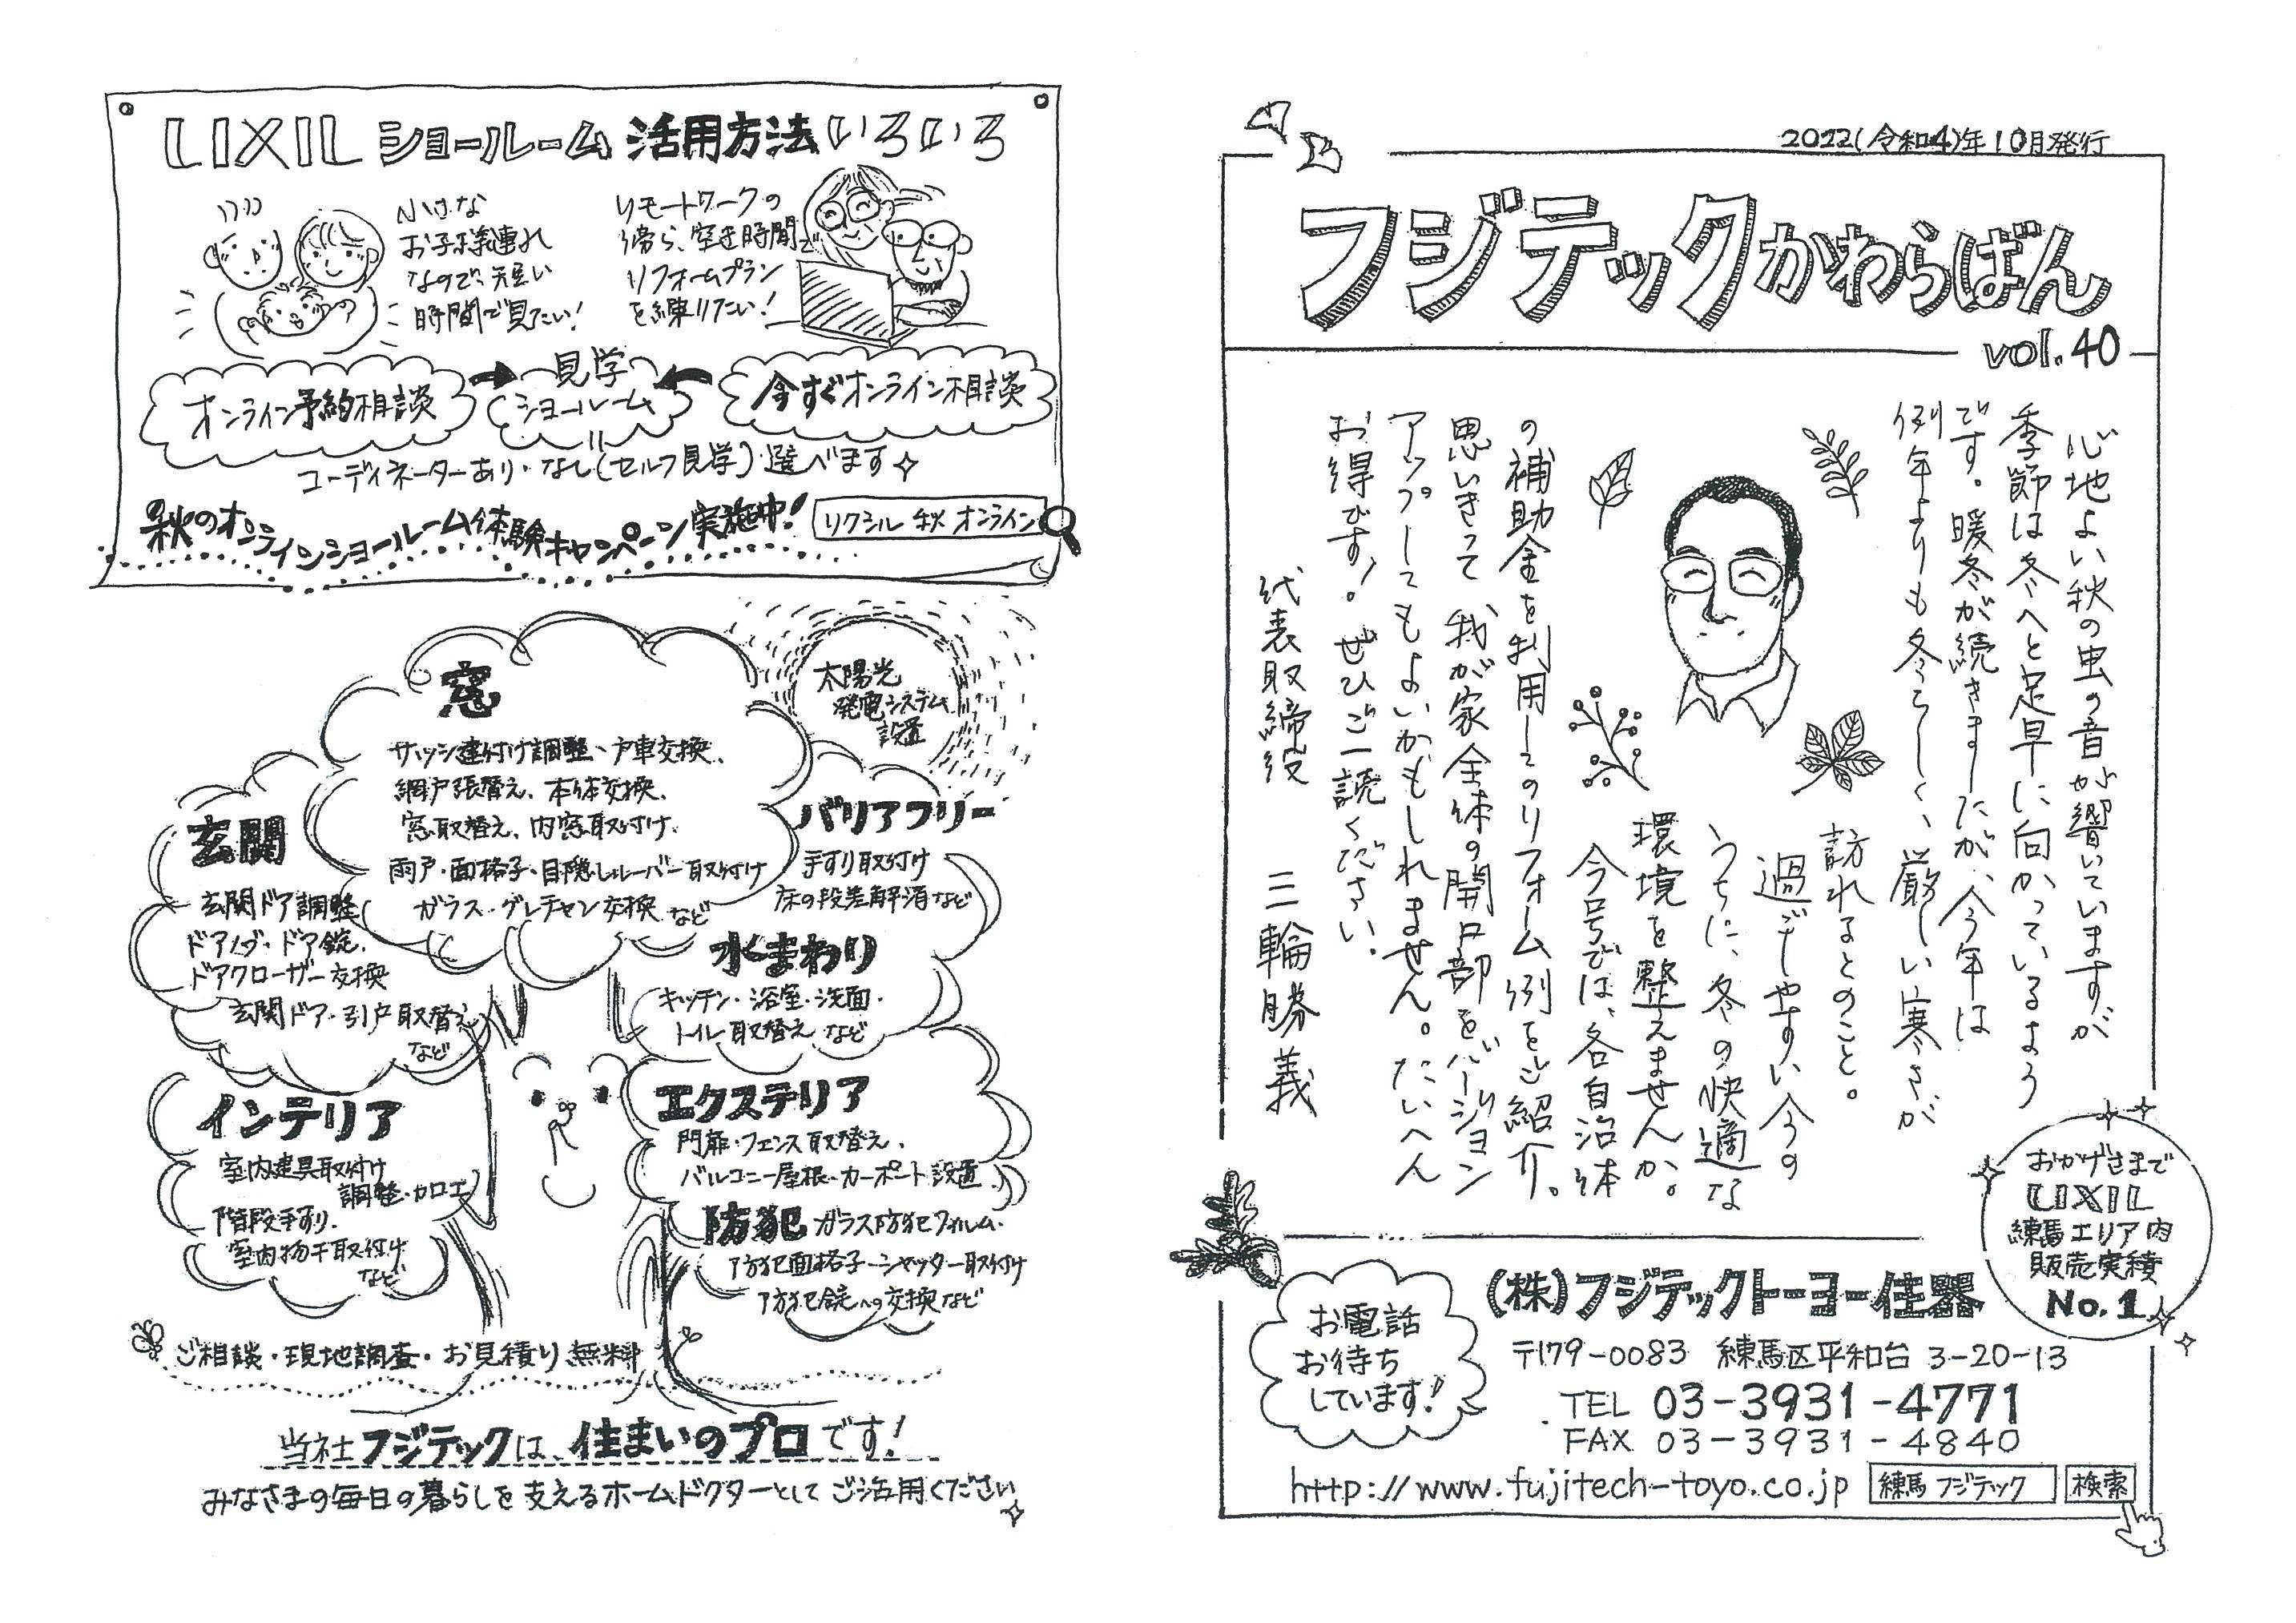 LIXIL ショールーム 活用方法いろいろ
小さな
お子様連れ
なので、短い
時間で見たい!
リモートワークの
傍ら、空き時間で
リフォームプラン
を練りたい!
オンライン予約相談
見学
ショールーム
今すぐオンライン相談
コーディネーターあり・なし(セルフ見学)選べます
秋のオンラインショールーム体験キャンペーン実施中!
リクシル 秋 オンライン
太陽光
発電システム
設置
窓
サッシ建付け調整、戸車交換、
網戸張替え、本体交換、
窓取替え、内窓取付け、
雨戸・面格子・目隠しルーバー取付け
ガラス・グレチャン交換 など
玄関
玄関ドア調整
ドアノブ・ドア錠、
ドアクローザー交換
玄関ドア・引戸取替え
など
バリアフリー
手すり取付け
床の段差解消など
水まわり
キッチン・浴室・洗面・
トイレ取替え など
インテリア
室内建具取付け
調整・加工
階段手すり、
室内物干取付け
など
エクステリア
門扉・フェンス取替え、
バルコニー屋根・カーポート設置
防犯 ガラス防犯フィルム・
防犯面格子・シャッター取付け
防犯錠への交換など
ご相談・現地調査・お見積り無料
当社フジテックは、住まいのプロです!
みなさまの毎日の暮らしを支えるホームドクターとしてご活用ください
2022(令和4)年10月発行
フジテックかわらばん
vol.40
心地よい秋の虫の音が響いていますが
季節は冬へと足早に向かっているよう
です。暖冬が続きましたが、今年は
例年よりも冬らしく、厳しい寒さが
訪れるとのこと。
過ごしやすい今の
うちに、冬の快適な
環境を整えませんか。
今号では、各自治体
の補助金を利用してのリフォーム例をご紹介。
思いきって 我が家全体の開口部をバージョン
アップしてもよいかもしれません。たいへん
お得です!ぜひご一読ください。
代表取締役 三輪勝義
おかげさまで
LIXIL
練馬エリア内
販売実績
No.1
お電話
お待ち
しています!
(株)フジテックトーヨー住器
〒179-0083 練馬区平和台 3-20-13
TEL 03-3931-4771
FAX 03-3931-4840
http://www.fujitech-toyo.co.jp 練馬 フジテック 検索